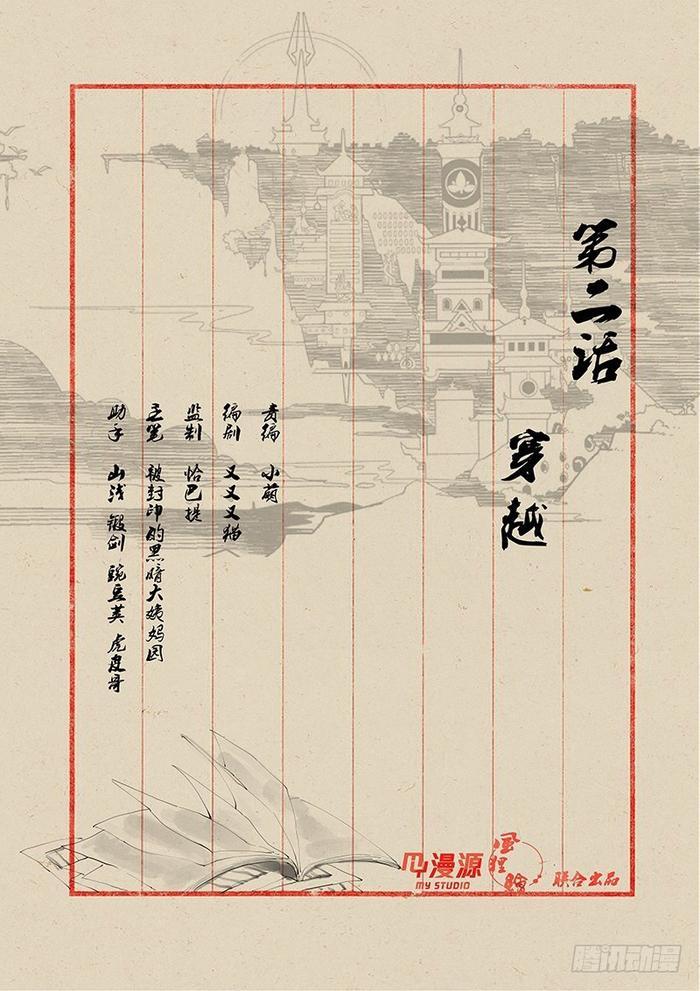 第二话
穿越
责编 小萌
编剧 又又又猫
监制 恰巴提
主笔 被封印的黑暗大姨妈园
助手 山浅 锻剑 豌豆荚 虎皮哥
漫源
MY STUDIO
联合出品
腾讯动漫